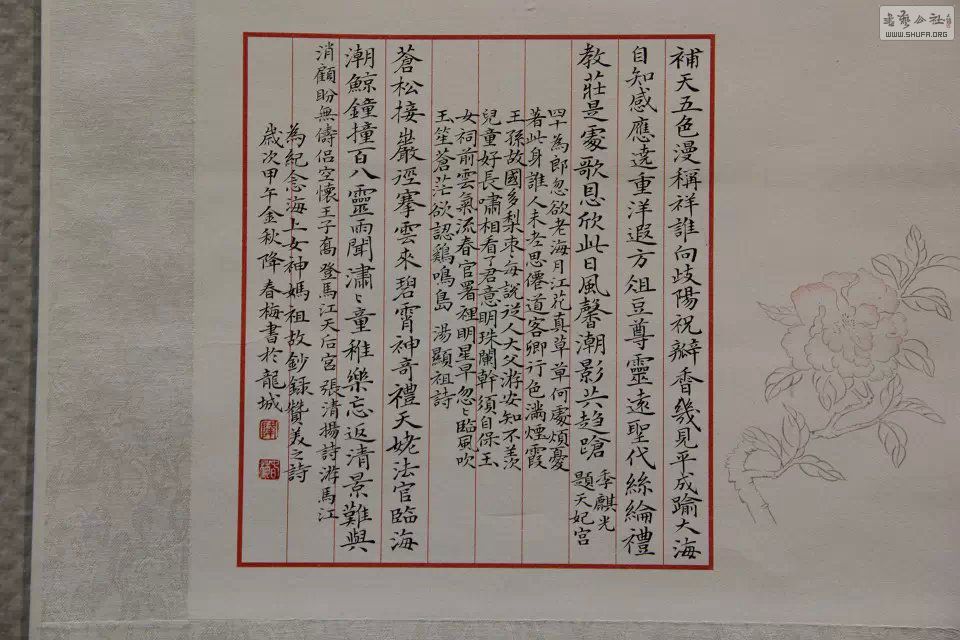 補天五色漫稱祥誰向歧陽祝瓣香幾見平成踰大海
自知感應遶重洋遐方俎豆尊靈遠聖代絲綸禮
教莊是處歌恩欣此日風馨潮影共趋蹌
季麒光
題天妃宮
四十為郎忽欲老海月江花真草草何處煩憂
著此身誰人未老思僊道客卿行色滿煙霞
王孫故國多梨棗每說沒人大父游安知不羨
兒童好長嘯相看了君意明珠闌幹須自保玉
女祠前雲氣流春官署裡明星早忽忽臨風吹
玉笙蒼茫欲認鷄鳴島 湯顯祖詩
蒼松接巖徑搴雲來碧霄神奇禮天姥法官臨海
潮鯨鐘撞百八靈雨聞瀟瀟童稚樂忘返清景難與
消顧盼無儔侶空懷王子喬 登馬江天后宮 張清揚詩游馬江
為紀念海上女神媽祖故鈔錄贊美之詩
歲次甲午金秋降春梅書於龍城
書藝公社
WWW.SHUFA.ORG